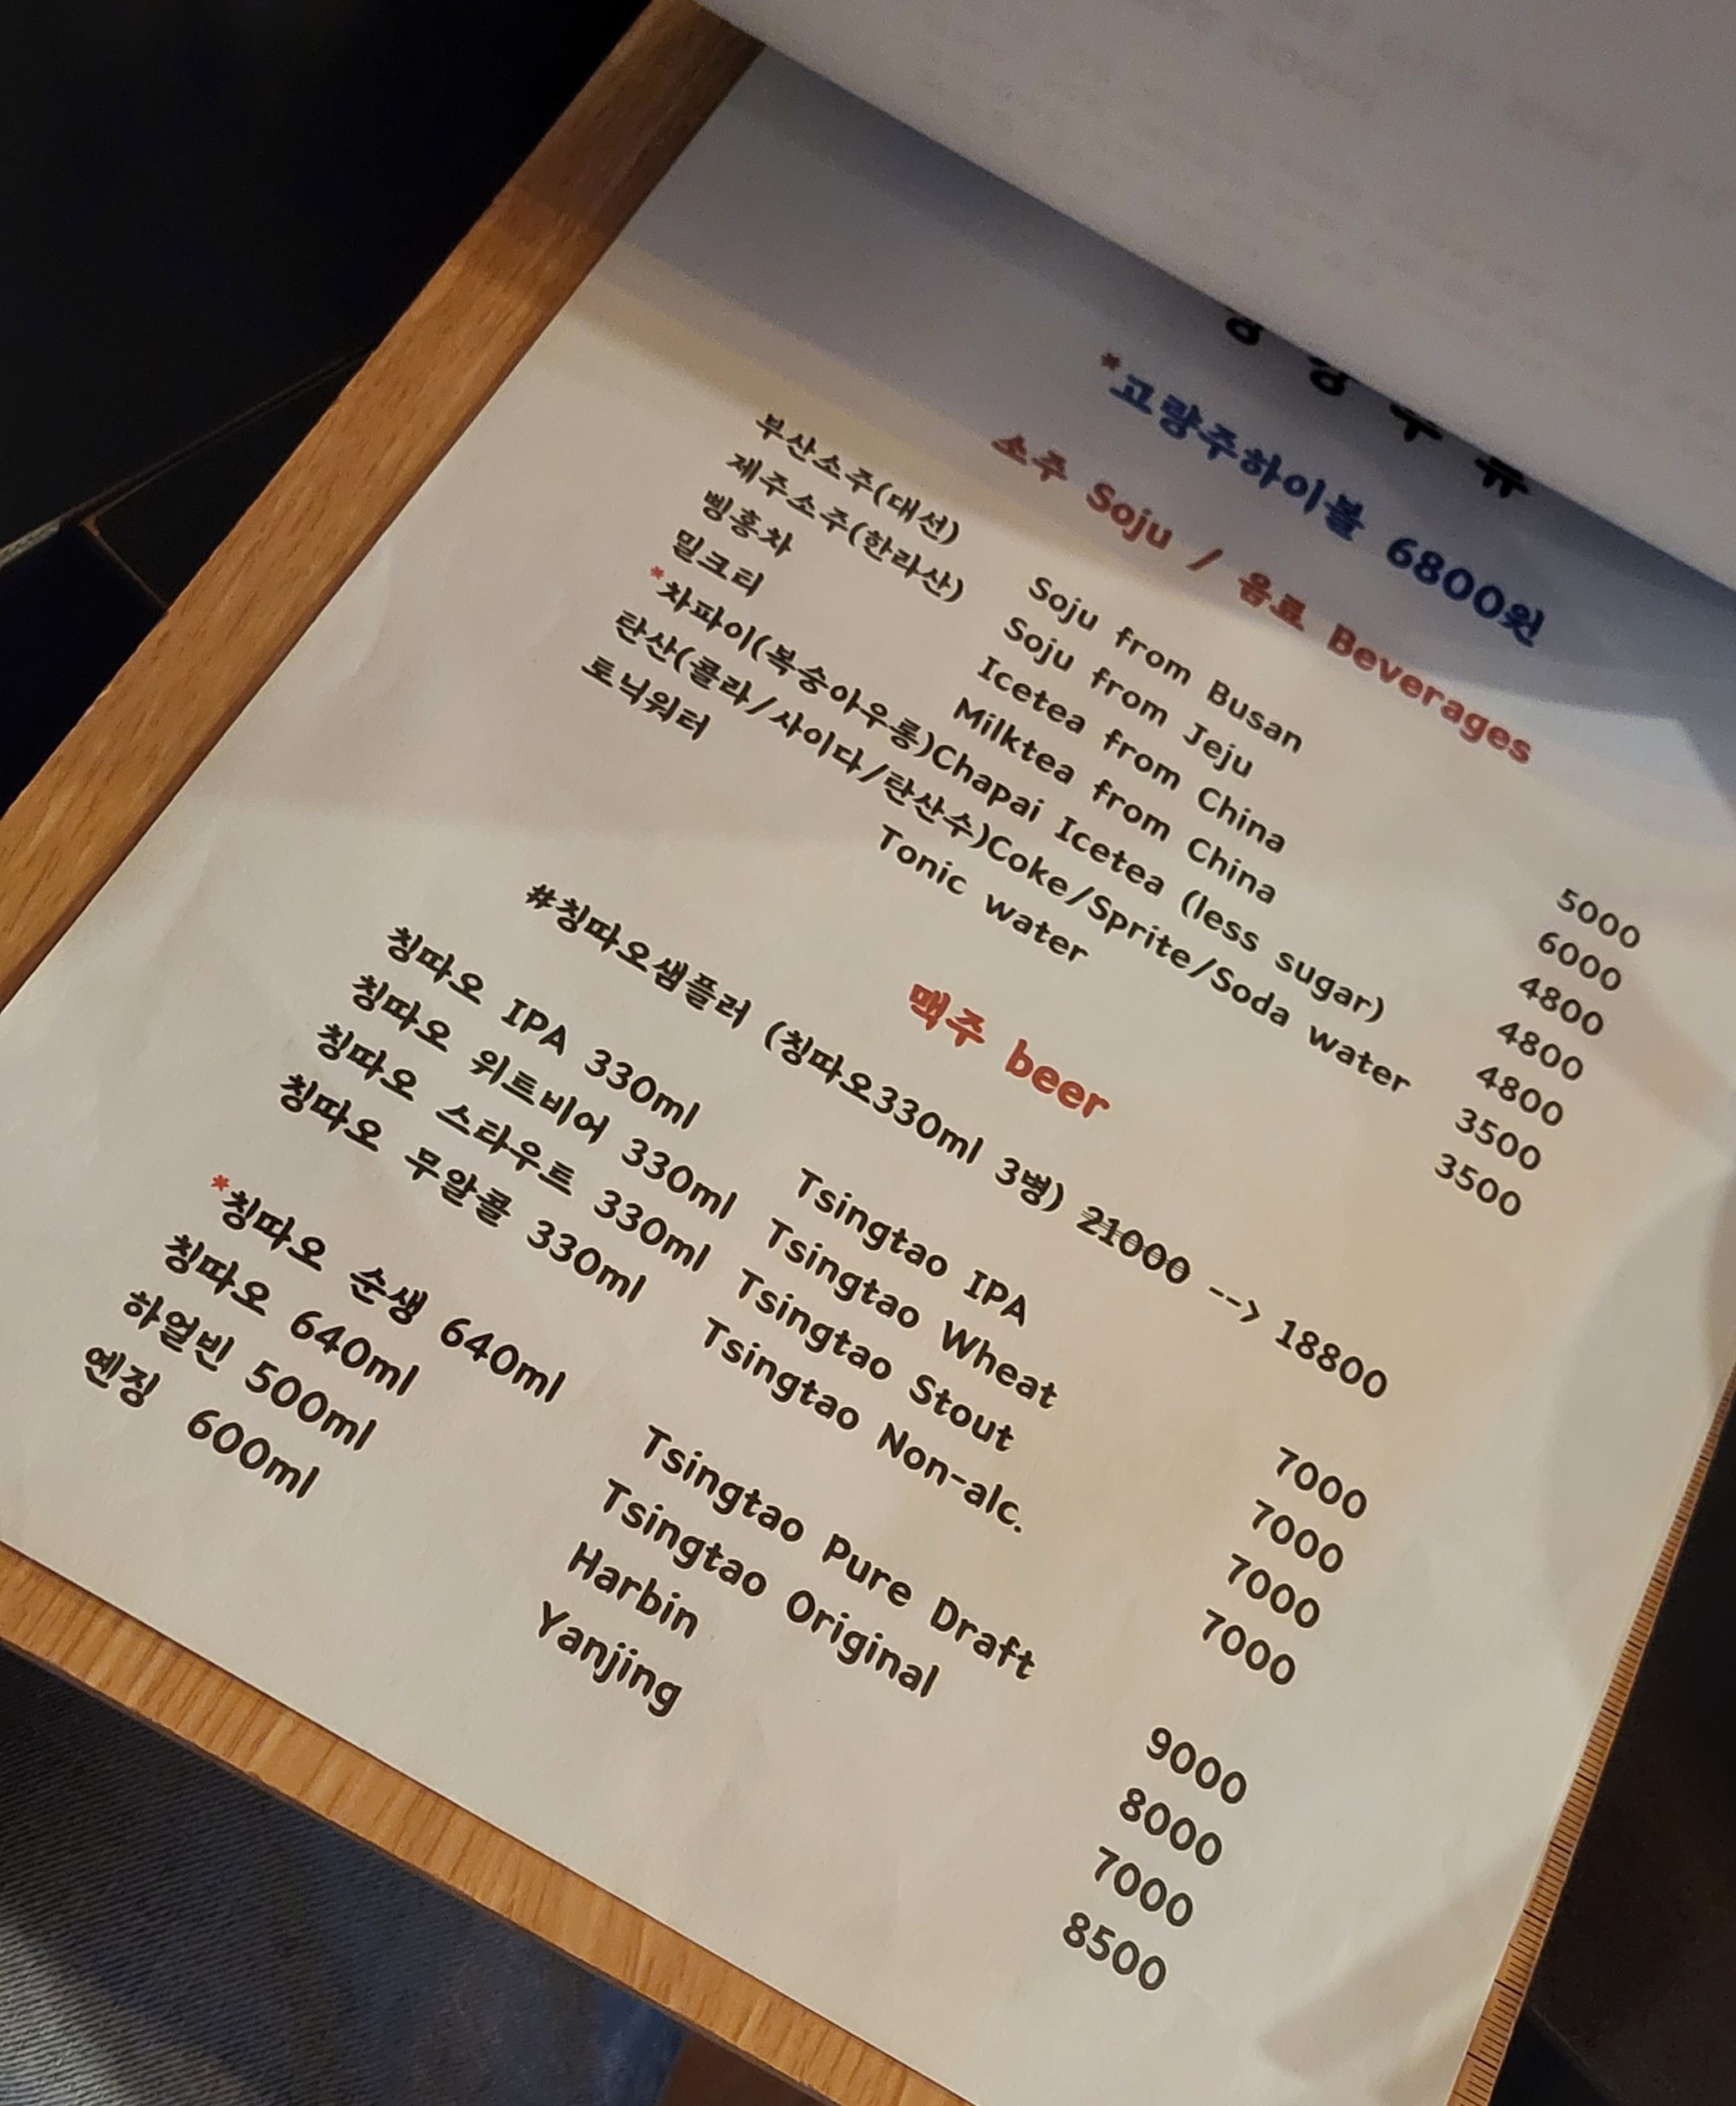 *고량주하이볼 6800원
소주 Soju / 음료 Beverages
부산소주(대선) Soju from Busan 5000
제주소주(한라산) Soju from Jeju 6000
삥홍차 Icetea from China 4800
밀크티 Milktea from China 4800
*차파이(복숭아우롱)Chapai Icetea (less sugar) 4800
탄산(콜라/사이다/탄산수)Coke/Sprite/Soda water 3500
토닉워터 Tonic water 3500
맥주 beer
#칭따오샘플러 (칭따오330ml 3병) 21000 --> 18800
칭따오 IPA 330ml Tsingtao IPA 7000
칭따오 위트비어 330ml Tsingtao Wheat 7000
칭따오 스타우트 330ml Tsingtao Stout 7000
칭따오 무알콜 330ml Tsingtao Non-alc. 7000
*칭따오 순생 640ml Tsingtao Pure Draft 9000
칭따오 640ml Tsingtao Original 8000
하얼빈 500ml Harbin 7000
옌징 600ml Yanjing 8500